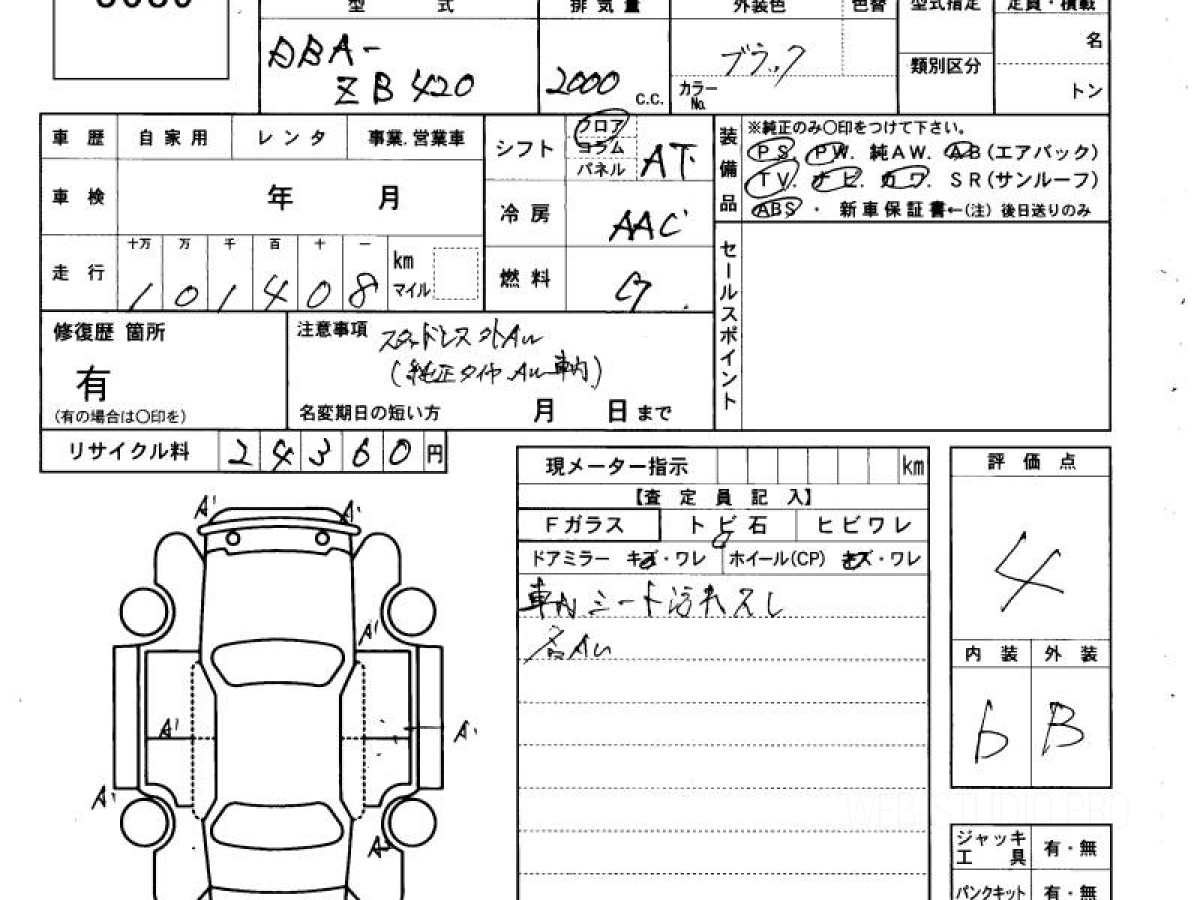 型 式
排 気 量
外装色
色替
型式指定
定員・積載
DBA-
ZB420
2000 c.c.
ブラック
カラーNo.
類別区分
名
トン
車 歴
自 家 用
レ ン タ
事業.営業車
車 検
年 月
走 行
十万 万 千 百 十 一
1 0 1 4 0 8
km
マイル
シフト
フロア
コラム
パネル
AT
冷 房
AAC
燃 料
装備品
※純正のみ〇印をつけて下さい。
PS. PW. 純AW. AB(エアバック)
TV. ナビ. カワ. SR(サンルーフ)
ABS ・ 新車保証書←(注) 後日送りのみ
セールスポイント
修復歴 箇所
有
(有の場合は〇印を)
注意事項
スタッドレス 外AW
(純正タイヤ.AW車内)
名変期日の短い方 月 日まで
リサイクル料
2 4 3 6 0 円
現メーター指示 km
【査 定 員 記 入】
Fガラス
ト ビ 石
ヒ ビ ワ レ
ドアミラー キズ・ワレ
ホイール(CP) キズ・ワレ
車内シート汚れスレ
評 価 点
4
内 装
外 装
B
A'
A'
A'
A'
A'
A'
A2
ジャッキ
工 具
有・無
パンクキット
有・無
WEB STUDIO PRO